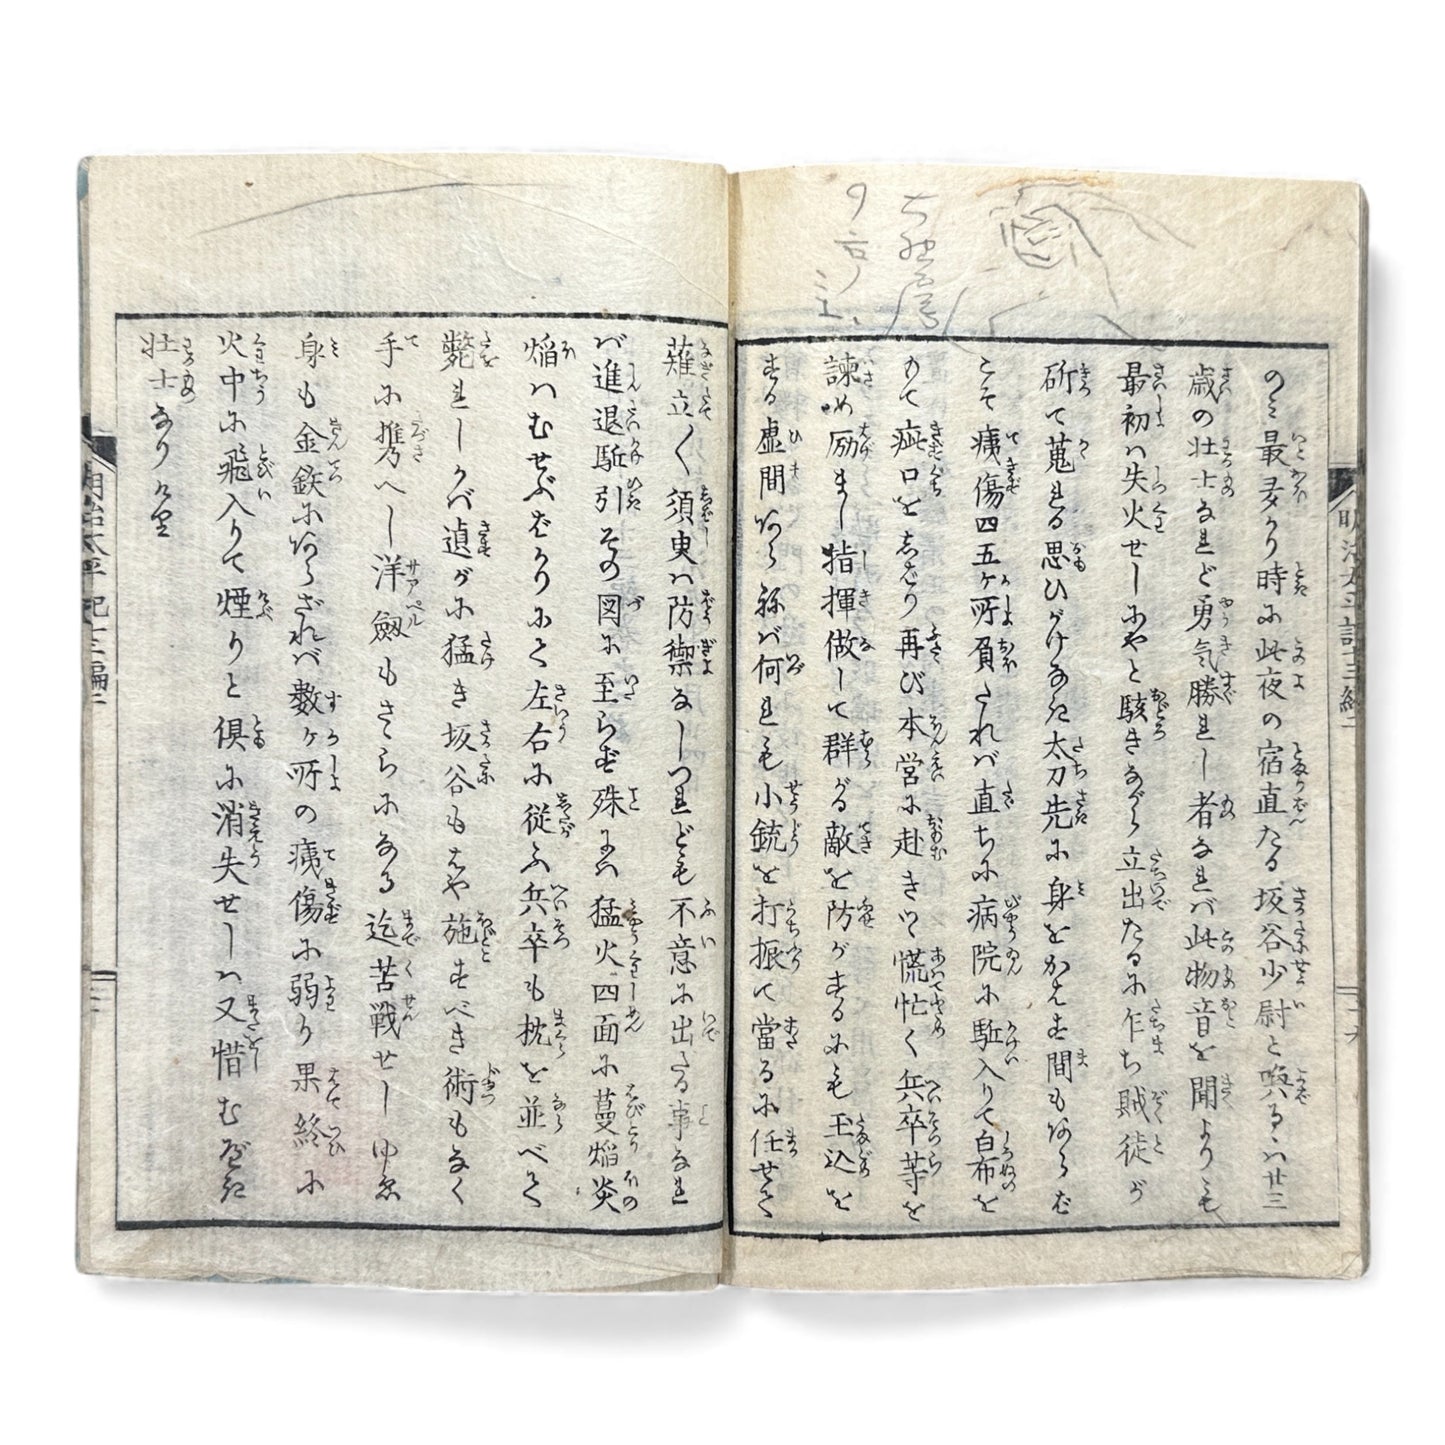 のミ最多かり時に此夜の宿直たる坂谷少尉と喚るハ廿三
歳の壮士なれど勇気勝れし者なれバ此物音を聞よりも
最初ハ失火せしにやと駭きながら立出たるに乍ち賊徒が
斫て蒐れる思ひがけなき太刀先に身をかえす間もあらば
こそ痍傷四五ヶ所負たれバ直ちに病院に駈入りて白布を
もて疵口を志ばり再び本営に赴きつゝ慌忙く兵卒等を
諫め励まし指揮做して群がる敵を防がするにも玉込を
する虚間あらねバ何れも小銃を打振て當るに任せて
薙立〳〵須臾ハ防禦なしつれども不意に出たる事なれ
バ進退駈引其の図に至らず殊にハ猛火四面に蔓焔炎
焔ハむせぶばかりにて左右に従ふ兵卒も枕を並べて
斃れしかバ遉がに猛き坂谷もはや施すべき術もなく
手に携へし洋劔もさゝらになる迄苦戦せしゆゑ
身も金鉄にあらざれバ数ヶ所の痍傷に弱り果終に
火中に飛入りて煙りと倶に消失せしハ又惜むべき
壮士なりけり
明治太平記十三編二
明治太平記十三編二